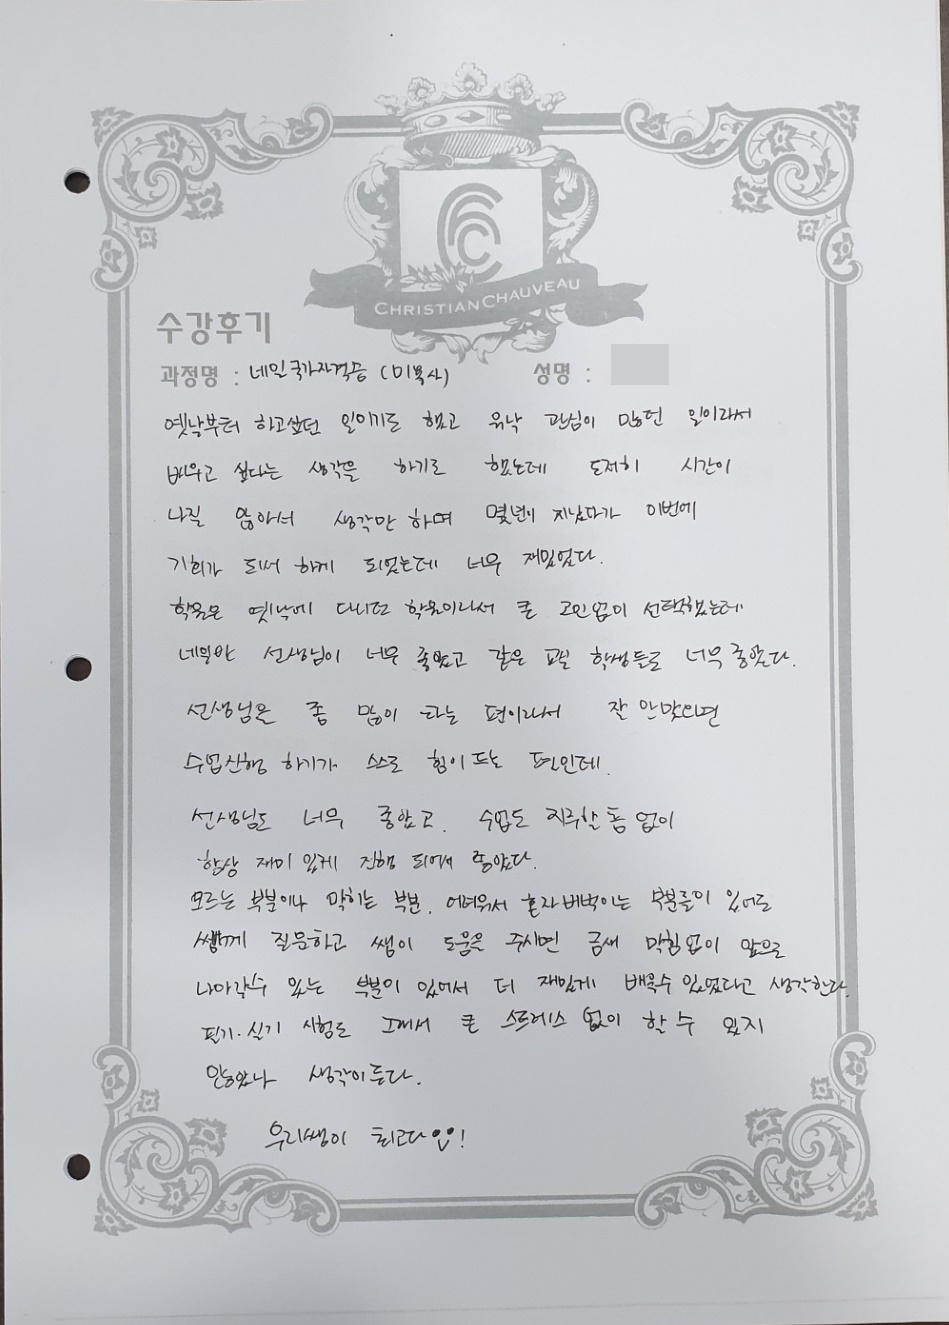 CHRISTIAN CHAUVEAU
수강후기
과정명 : 네일국가자격증 (미용사) 성명 :
옛날부터 하고싶던 일이기도 했고 워낙 관심이 많던 일이라서
배우고 싶다는 생각을 하기로 했는데 도저히 시간이
나질 않아서 생각만 하며 몇년이 지났다가 이번에
기회가 되어 하게 되었는데 너무 재밌었다.
학원은 옛날에 다니던 학원이라서 큰 고민없이 선택했는데
선생님이 너무 좋았고 같은 반 학생들도 너무 좋았다.
선생님은 좀 많이 타는 편이라서 잘 안맞으면
수업진행 하기가 스스로 힘이 드는 편인데.
선생님도 너무 좋았고. 수업도 지루할 틈 없이
항상 재미 있게 진행 되어서 좋았다.
모르는 부분이나 막히는 부분. 어려워서 혼자 버벅이는 부분들이 있어도
쌤께 질문하고 쌤이 도움을 주시면 금새 막힘없이 앞으로
나아갈수 있는 부분이 있어서 더 재밌게 배울수 있었다고 생각한다.
필기·실기 시험도 그래서 큰 스트레스 없이 할 수 있지
않았나 생각이 든다.
우리쌤이 최고다!